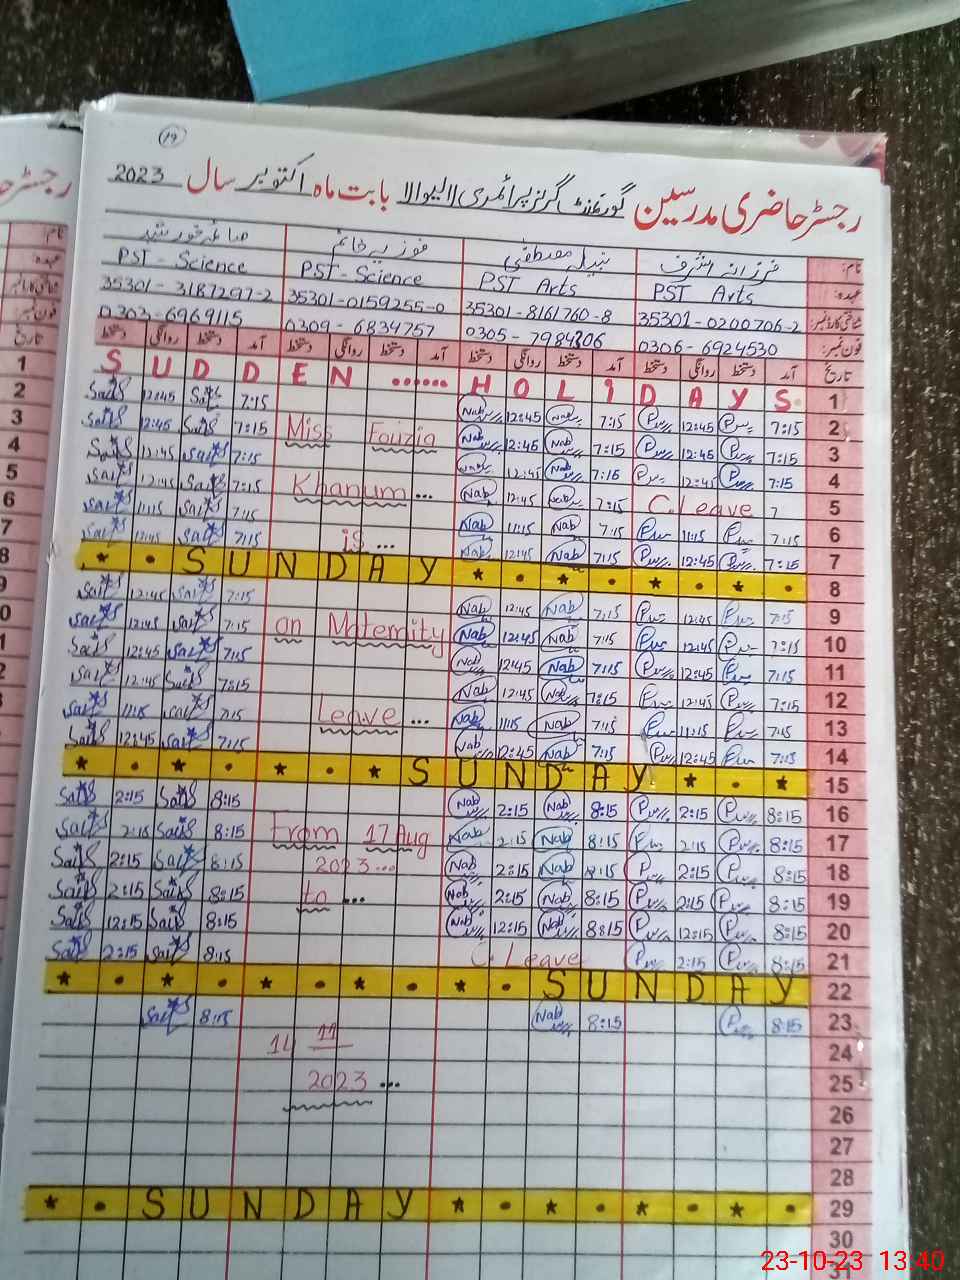 19
رجسٹر حاضری مدرسین گورنمنٹ گرلز پرائمری لالیوالا بابت ماہ اکتوبر سال 2023
نام: فرزانہ اشرف نبیلہ مصطفی فوزیہ خانم صائمہ خورشید
عہدہ: PST Arts PST Arts PST-Science PST-Science
شناختی کارڈ نمبر: 35301-0200706-2 35301-8161760-8 35301-0159255-0 35301-3187297-2
فون نمبر: 0306-6924530 0305-7984306 0309-6834757 0303-6969115
تاریخ آمد دستخط روانگی دستخط آمد دستخط روانگی دستخط آمد دستخط روانگی دستخط آمد دستخط روانگی دستخط
SUDDEN ...... HOLIDAYS 1
12:45 7:15 Miss Fouzia Nab 12:45 Nab 7:15 12:45 7:15 2
12:45 7:15 Nab 12:45 Nab 7:15 12:45 7:15 3
12:45 7:15 Khanum... 12:45 Nab 7:15 12:45 7:15 4
12:45 7:15 Nab 12:45 7:15 C.Leave 7 5
11:15 7:15 is... Nab 11:15 Nab 7:15 11:15 7:15 6
12:45 7:15 Nab 12:45 Nab 7:15 12:45 7:15 7
* • SUNDAY * • * • * • * • 8
12:45 7:15 on Maternity Nab 12:45 Nab 7:15 12:45 7:15 9
12:45 7:15 Nab 12:45 Nab 7:15 12:45 7:15 10
12:45 7:15 Nab 12:45 Nab 7:15 12:45 7:15 11
12:45 7:15 Leave... Nab 12:45 Nab 7:15 12:45 7:15 12
11:15 7:15 Nab 11:15 Nab 7:15 11:15 7:15 13
12:45 7:15 Nab 12:45 Nab 7:15 12:45 7:15 14
* • * • * • * SUNDAY * • * 15
2:15 8:15 Nab 2:15 Nab 8:15 2:15 8:15 16
2:15 8:15 From 17 Aug Nab 2:15 Nab 8:15 2:15 8:15 17
2:15 8:15 2023... Nab 2:15 Nab 8:15 2:15 8:15 18
2:15 8:15 to... Nab 2:15 Nab 8:15 2:15 8:15 19
12:15 8:15 Nab 12:15 Nab 8:15 12:15 8:15 20
2:15 8:15 C Leave 2:15 8:15 21
* • * • * • * • * • SUNDAY 22
8:15 Nab 8:15 8:15 23
14 11 24
2023... 25
26
27
28
* • SUNDAY * • * • * • * • 29
30
31
23-10-23 13:40